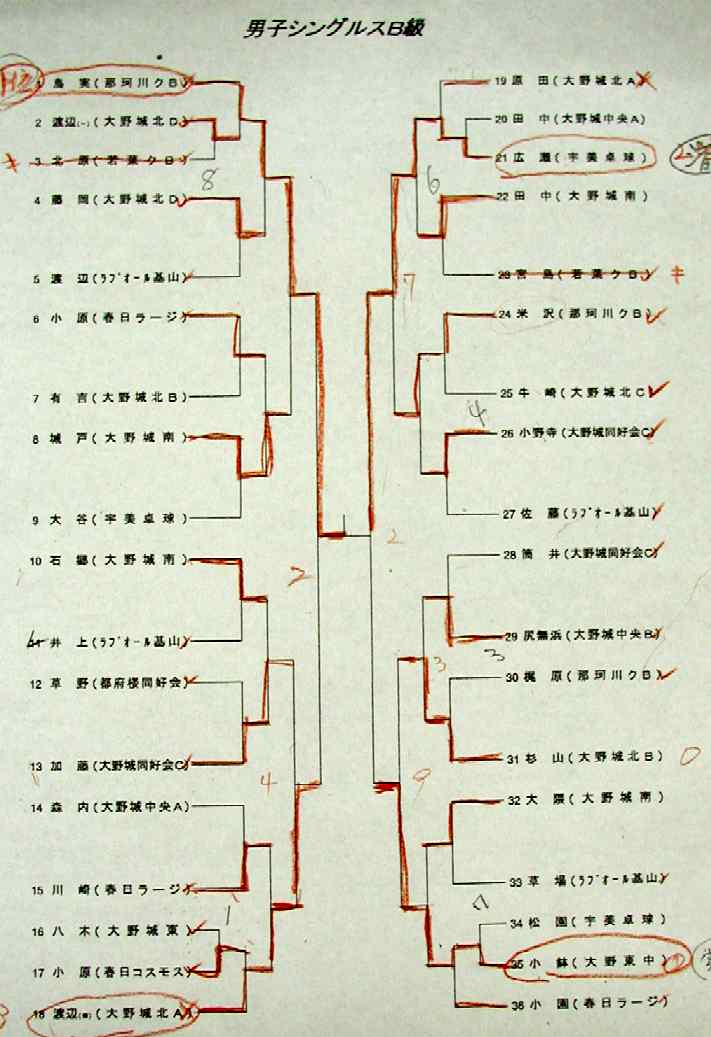 男子シングルスB級
1 鳥 実(那珂川クB)
2 渡辺(一)(大野城北D)
3 北 原(若葉クB)
4 藤 岡(大野城北D)
5 渡 辺(ラブオール基山)
6 小 原(春日ラージ)
7 有 吉(大野城北B)
8 城 戸(大野城南)
9 大 谷(宇美卓球)
10 石 郷(大野城南)
11 井 上(ラブオール基山)
12 草 野(都府楼同好会)
13 加 藤(大野城同好会C)
14 森 内(大野城中央A)
15 川 崎(春日ラージ)
16 八 木(大野城東)
17 小 原(春日コスモス)
18 渡辺(大野城北A)
19 原 田(大野城北A)
20 田 中(大野城中央A)
21 広 瀬(宇美卓球)
22 田 中(大野城南)
23 宮 島(若葉クB)
24 米 沢(那珂川クB)
25 牛 崎(大野城北C)
26 小野寺(大野城同好会C)
27 佐 藤(ラブオール基山)
28 筒 井(大野城同好会C)
29 尻無浜(大野城中央B)
30 梶 原(那珂川クB)
31 杉 山(大野城北B)
32 大 隈(大野城南)
33 草 場(ラブオール基山)
34 松 園(宇美卓球)
35 小 鉢(大野東中)
36 小 園(春日ラージ)
8
6
7
4
2
2
3
3
4
9
1